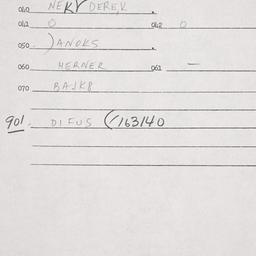 040 NEKY DEREK
041 0 042 0
050 JANOKS
060 HERNER 061 —
070 BAJK8
901. DIFUS (/163140